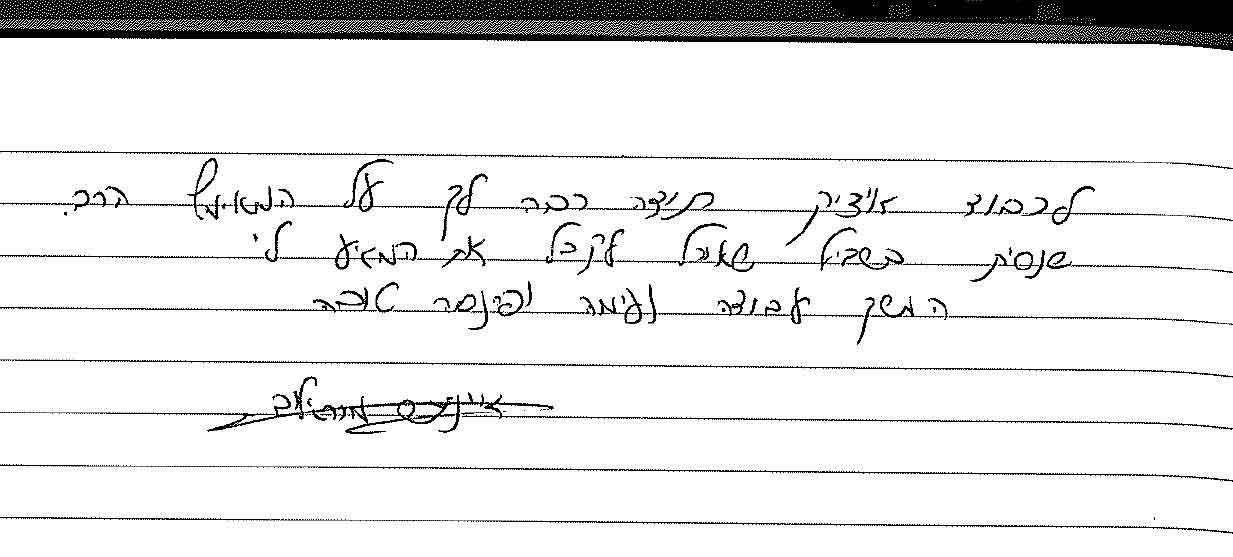 לכבוד איציק תודה רבה לך על המאמץ הרב.
שנסית בשביל שאוכל לקבל את המגיע לי
המשך עבודה נעימה ופרנסה טובה